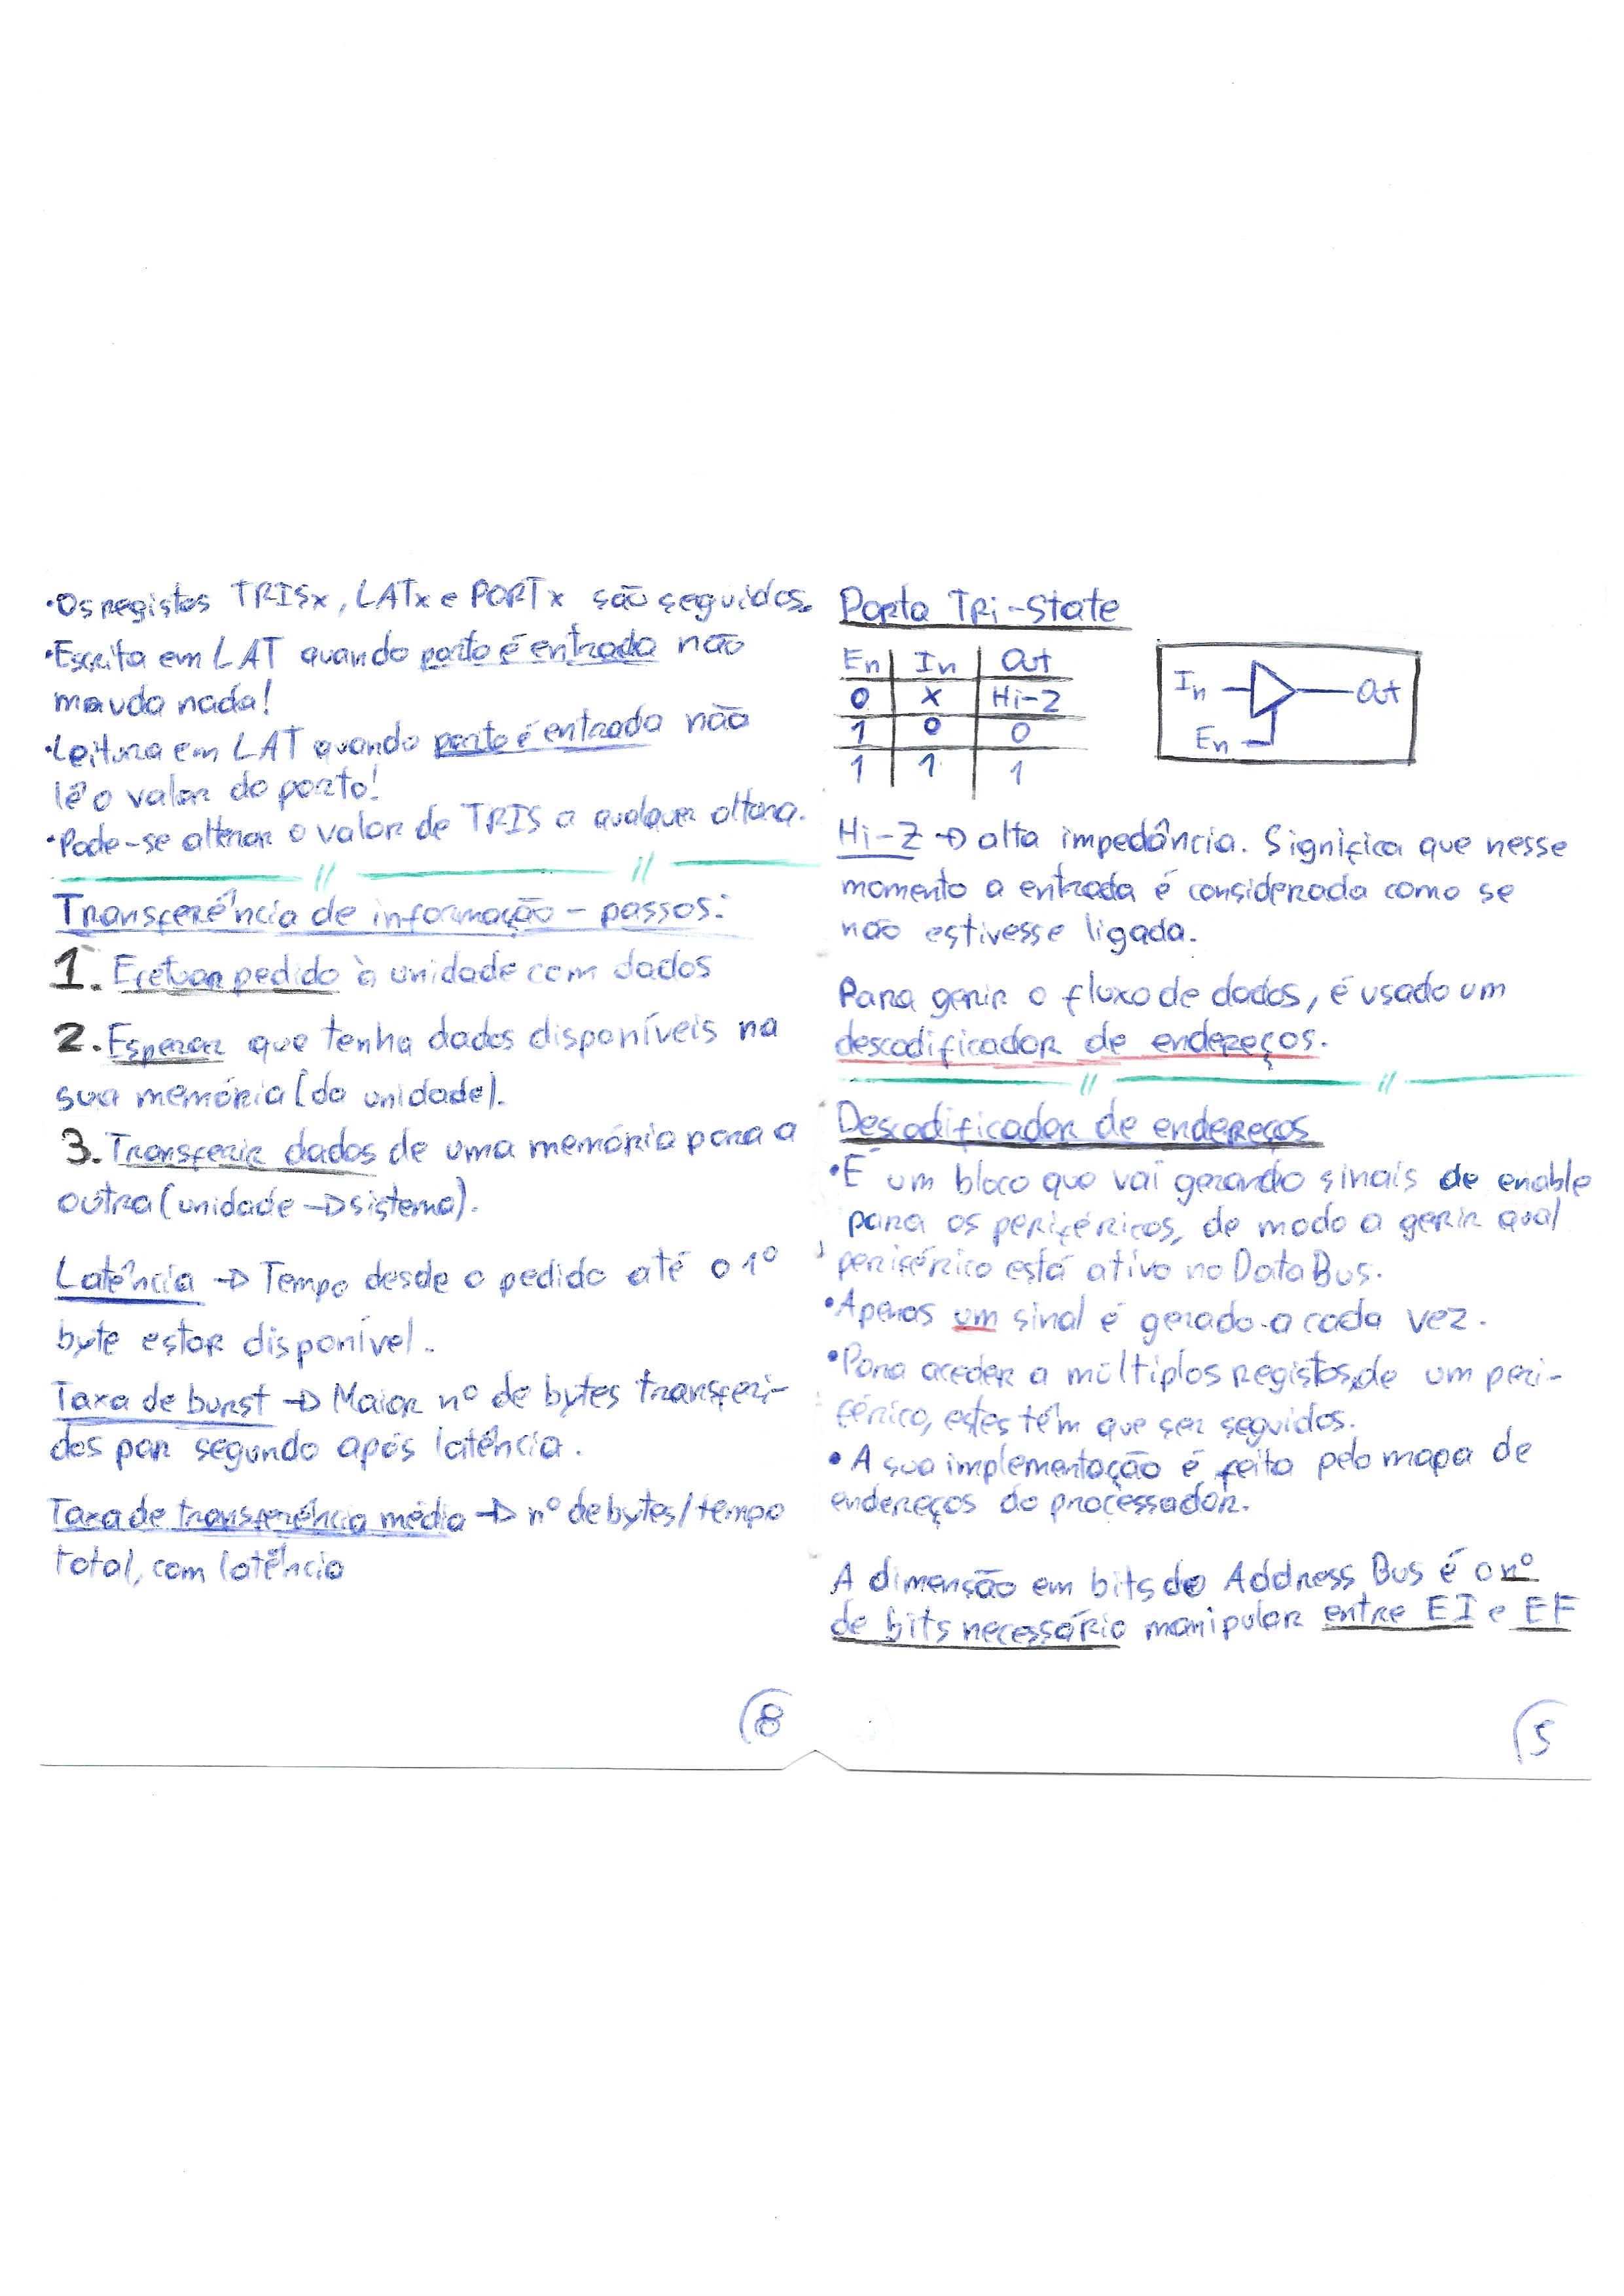 •Os registos TRISx, LATx e PORTx são seguidos.
•Escrita em LAT quando porto é entrada não
muda nada!
•Leitura em LAT quando porto é entrada não
lê o valor do porto!
•Pode-se alterar o valor de TRIS a qualquer altura.
Transferência de informação - passos:
1. Efetuar pedido à unidade com dados
2. Esperar que tenha dados disponíveis na
sua memória (da unidade).
3. Transferir dados de uma memória para a
outra (unidade → sistema).
Latência → Tempo desde o pedido até o 1º
byte estar disponível.
Taxa de burst → Maior nº de bytes transferi-
dos por segundo após latência.
Taxa de transferência média → nº de bytes/tempo
total, com latência
8
Porta Tri-State
En In Out
0 X Hi-Z
1 0 0
1 1 1
In Out
En
Hi-Z → alta impedância. Significa que nesse
momento a entrada é considerada como se
não estivesse ligada.
Para gerir o fluxo de dados, é usado um
descodificador de endereços.
Descodificador de endereços
•É um bloco que vai gerando sinais de enable
para os periféricos, de modo a gerir qual
periférico está ativo no Data Bus.
•Apenas um sinal é gerado a cada vez.
•Para aceder a múltiplos registos de um peri-
férico, estes têm que ser seguidos.
• A sua implementação é feita pelo mapa de
endereços do processador.
A dimensão em bits do Address Bus é o nº
de bits necessário manipular entre EI e EF
5